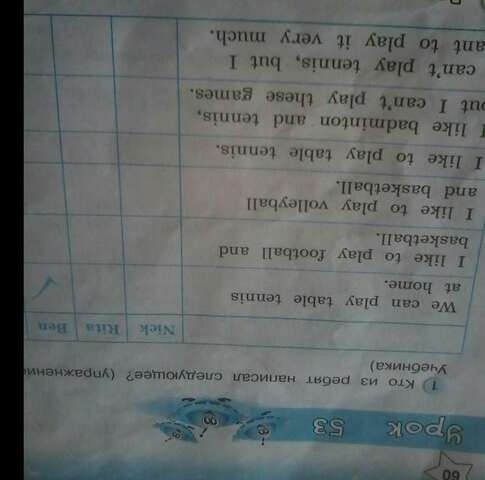 60
Урок 53
1 Кто из ребят написал следующее? (упражнение
Учебника)
Nick Rita Ben
We can play table tennis
at home.
I like to play football and
basketball.
I like to play volleyball
and basketball.
I like to play table tennis.
I like badminton and tennis,
but I can't play these games.
can't play tennis, but I
ant to play it very much.